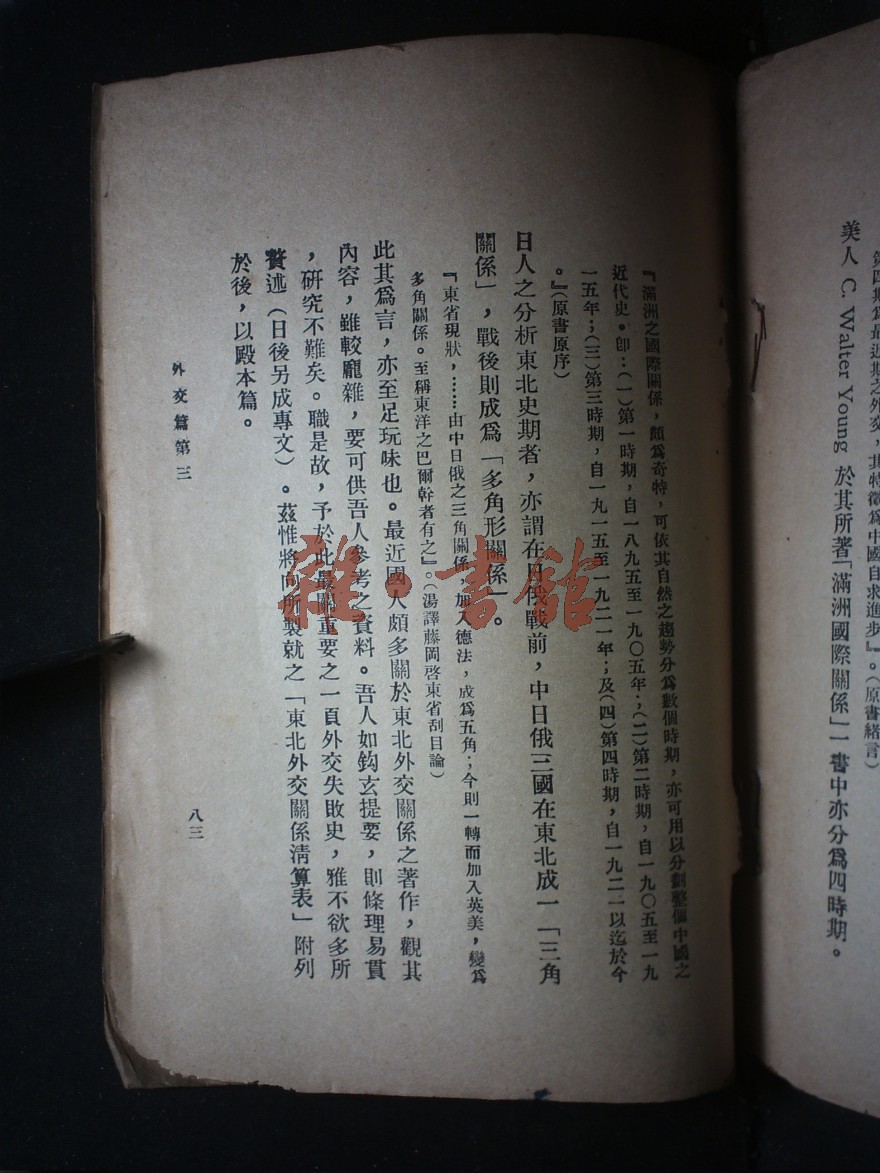 第四期爲最近期之外交，其特徵爲中國自求進步』。(原書緒言)
美人 C. Walter Young 於其所著「滿洲國際關係」一書中亦分爲四時期。
『滿洲之國際關係，頗爲奇特，可依其自然之趨勢分爲數個時期，亦可用以分劃整個中國之
近代史。卽：(一)第一時期，自一八九五至一九〇五年；(二)第二時期，自一九〇五至一九
一五年；(三)第三時期，自一九一五至一九二一年；及(四)第四時期，自一九二一以迄於今
。』(原書原序)
日人之分析東北史期者，亦謂在日俄戰前，中日俄三國在東北成一「三角
關係」，戰後則成爲「多角形關係」。
『東省現狀，……由中日俄之三角關係，加入德法，成爲五角；今則一轉而加入英美，變爲
多角關係。至稱東洋之巴爾幹者有之』。(湯譯藤岡啓東省刮目論)
此其爲言，亦至足玩味也。最近國人頗多關於東北外交關係之著作，觀其
內容，雖較龐雜，要可供吾人參考之資料。吾人如鈎玄提要，則條理易貫
，硏究不難矣。職是故，予於此最關重要之一頁外交失敗史，雅不欲多所
贅述(日後另成專文)。茲惟將向所製就之「東北外交關係清算表」附列
於後，以殿本篇。
外交篇第三
八三
雜·書館